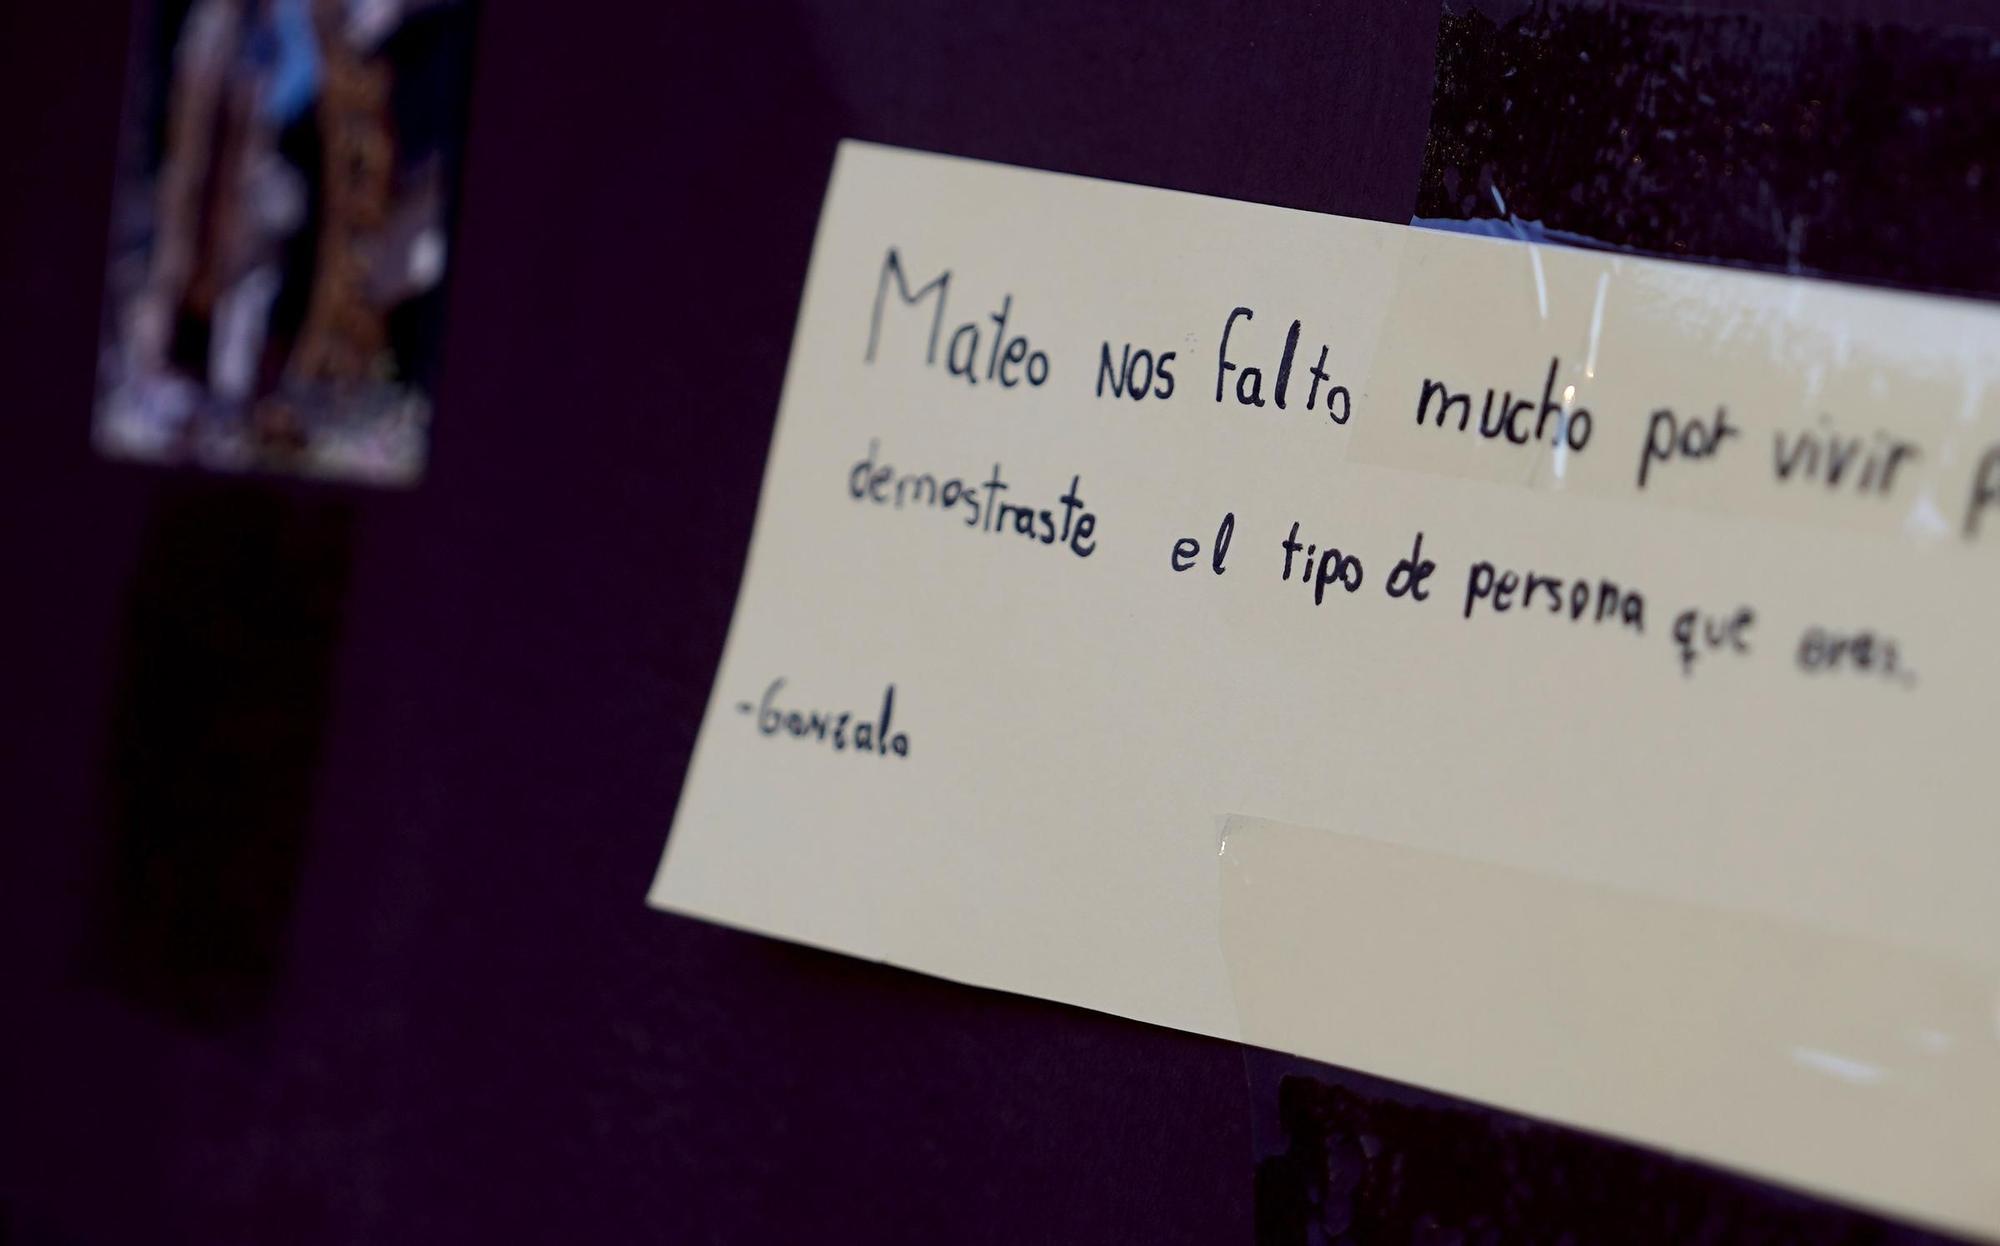 Mateo nos falto mucho por vivir
demostraste el tipo de persona que eres.
-Gonzalo